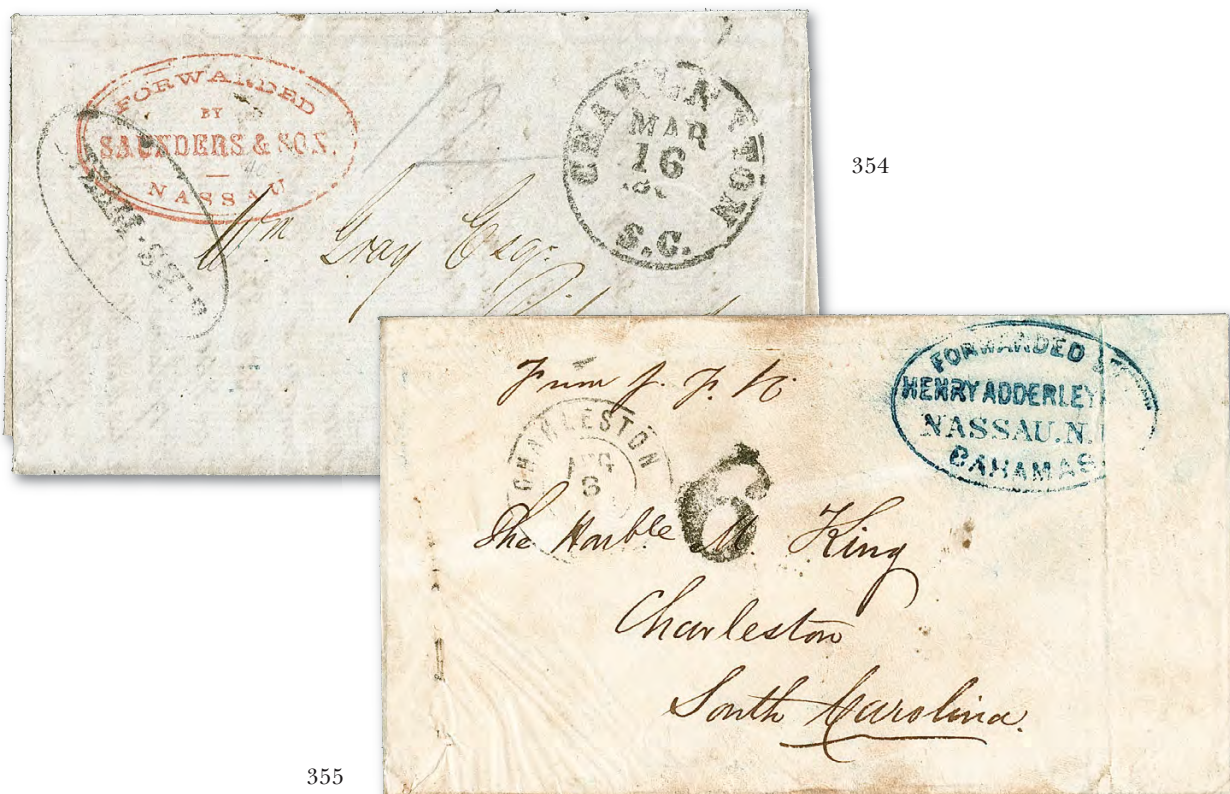 FORWARDED
BY
SAUNDERS & SON.
NASSAU
CHARLESTON
MAR
16
S.C.
12
Wm Gray Esqr.
354
From J. F. K.
FORWARDED
HENRY ADDERLEY
NASSAU. N.
BAHAMAS
CHARLESTON
AUG
3
6
The Honble M. King
Charleston
South Carolina.
355